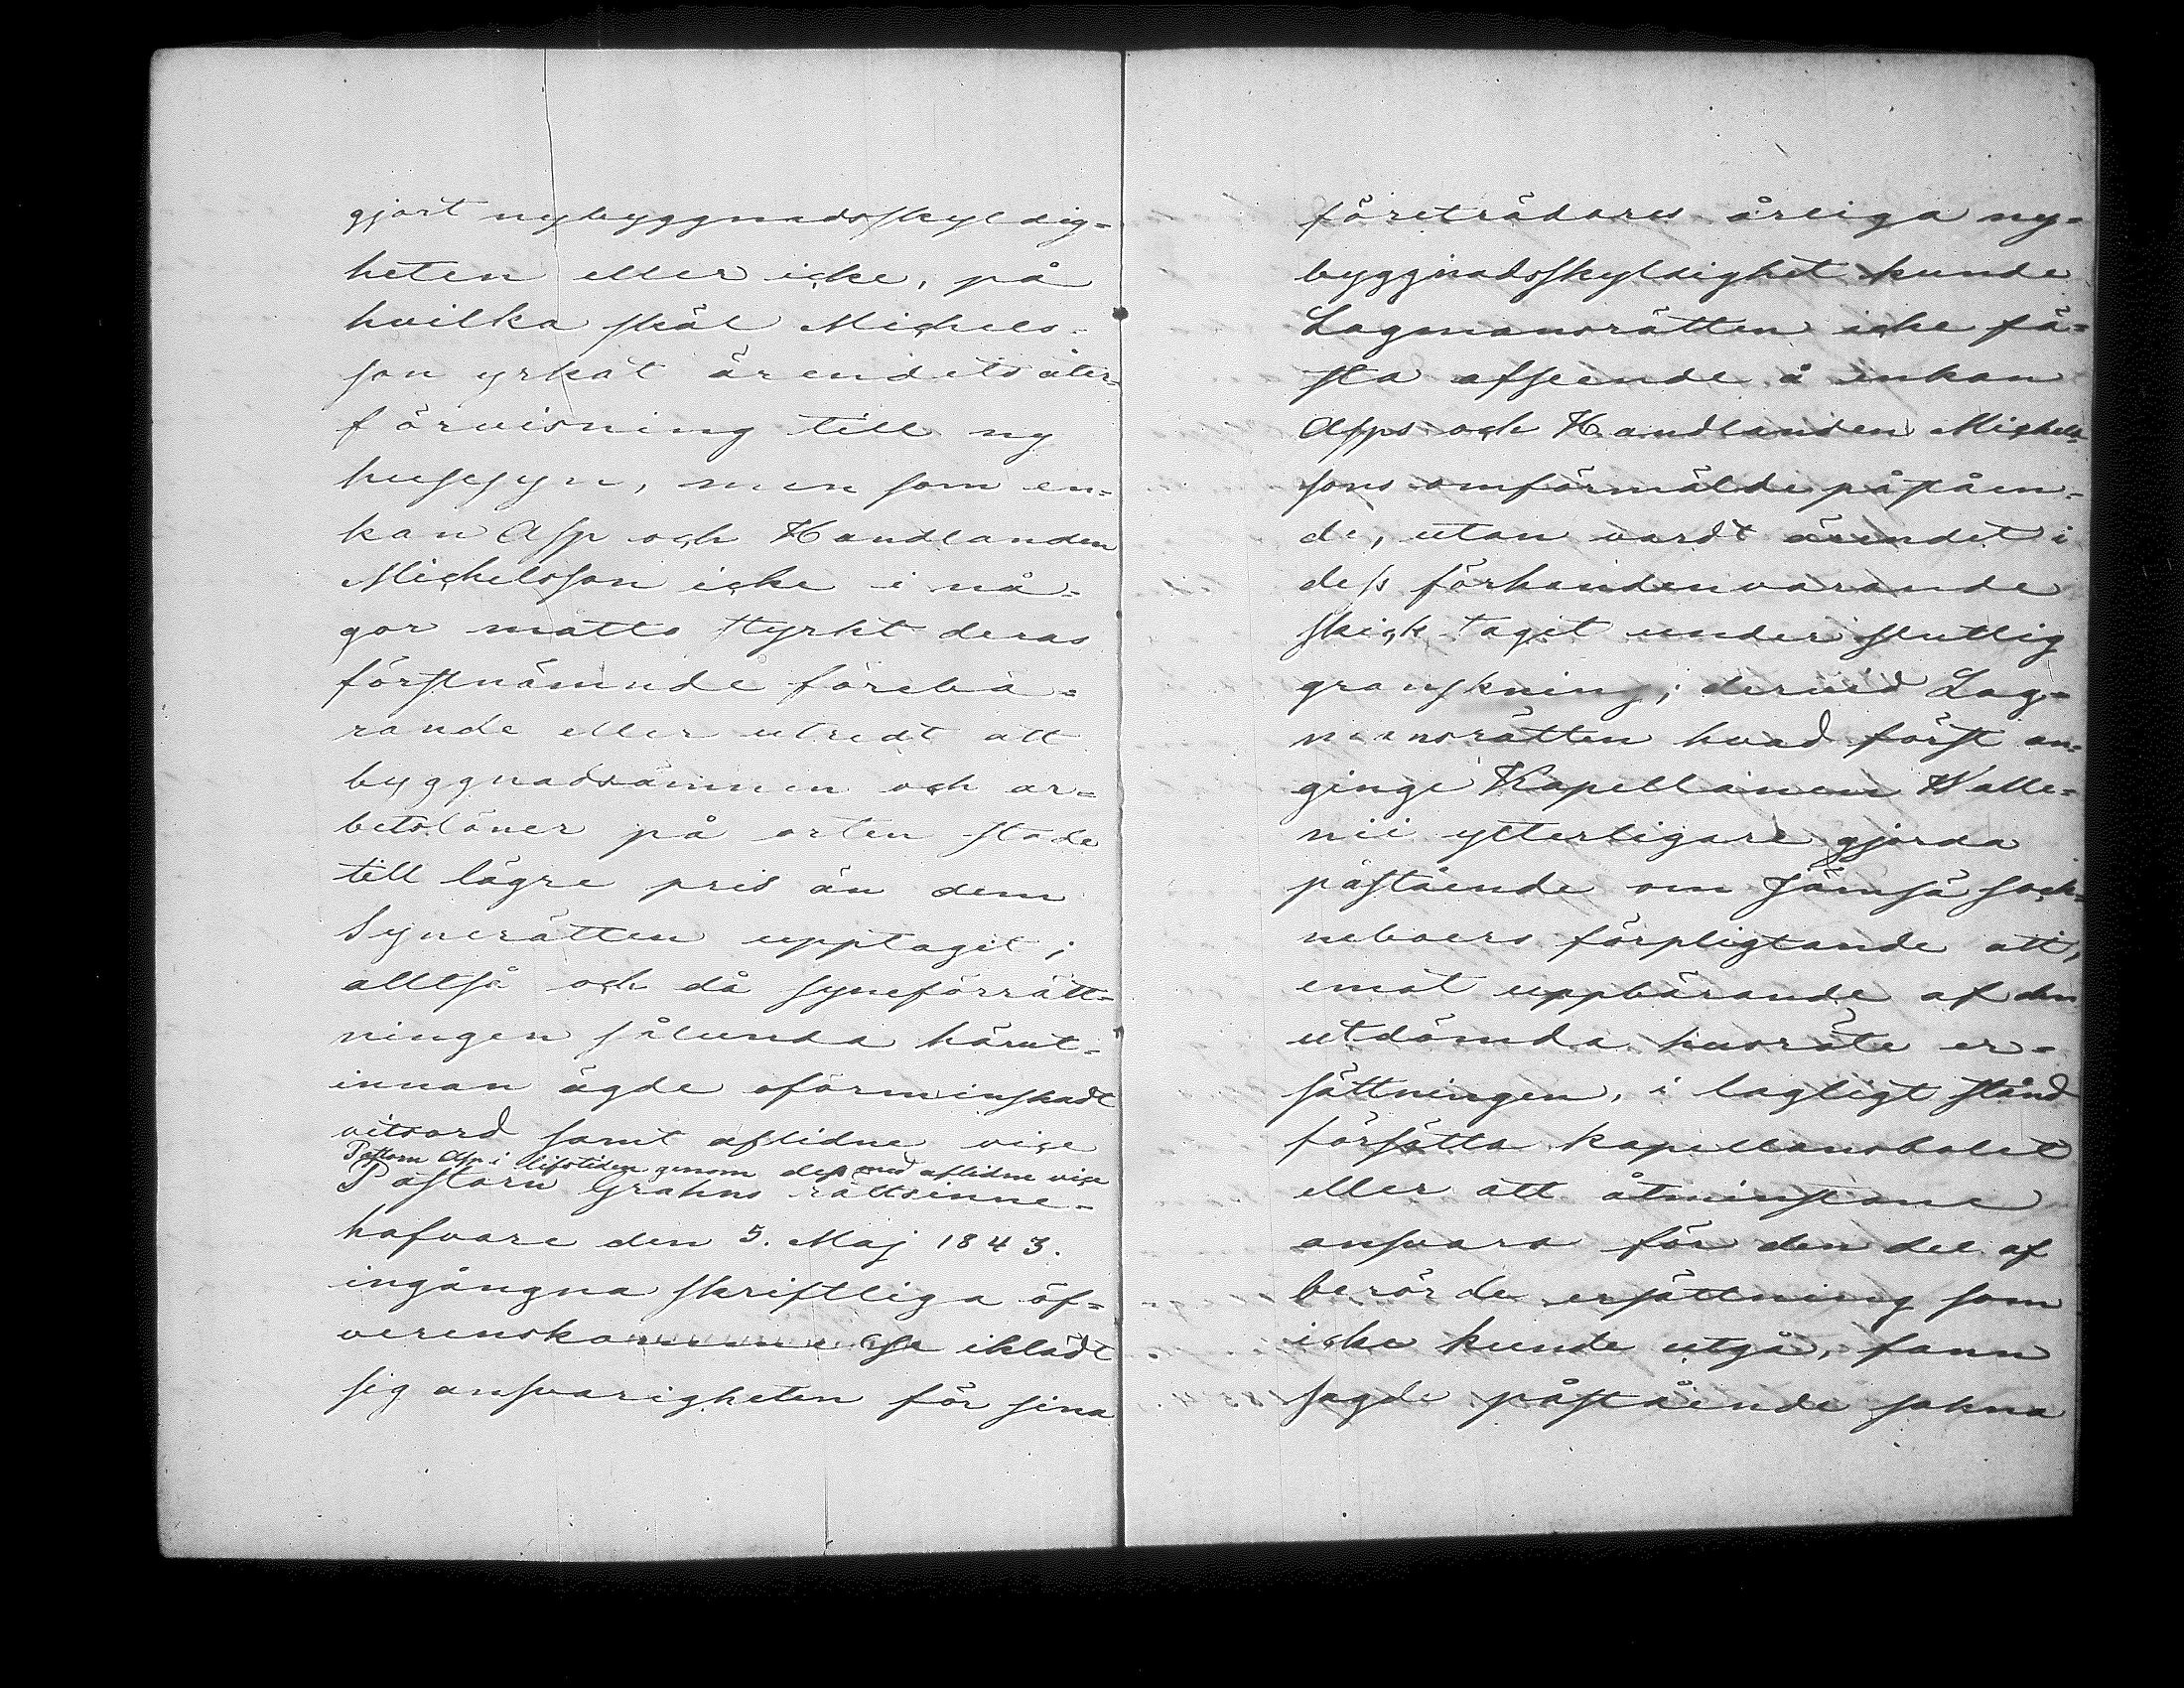 gjort nybyggnadsskyldig=
heten eller icke, på
hvilka skäl Michels=
son yrkat ärendets åter=
förvisning till ny
husesyn, men som en=
kan Asp och Handlanden
Michelsson icke i nå=
gor matto styrkt deras
förstnämnde föreba=
rande eller utredt att
byggnadsämnen och ar=
betslöner på orten stode
till lägre pris än dem
Synerätten upptagit;
alltså och då syneförrätt=
ningen sålunda härut=
innan ägde oförminskadt
vitsord samt aflidne vice
Pastorn Asp i lifstiden genom dess med aflidne vice
Pastorn Grahns rättsinne=
hafvare den 5. Maj 1843.
ingångna skriftliga öf=
verenskommelse iklädt
sig ansvarigheten för sina
företrädares årliga ny=
byggnadsskyldighet kunde
Lagmansrätten icke fä=
sta afseende å enkan
Asps och Handlanden Michels=
sons omförmälde påståen=
de, utan vardt ärendet i
dess förhandenvarande
skick taget under slutlig
granskning; dervid Lag=
mansrätten hvad först an=
ginge Kapellanen Walle=
nii ytterligare gjorda
påstående om Jämsä sock=
neboers förpligtande att,
emot uppbärande af den
utdömda husröte er=
sättningen, i lagligt stånd
försätta kapellansbolet
eller att åtminstone
ansvara för den del af
berörde ersättning som
icke kunde utgå, fann
sagde påstående sakna